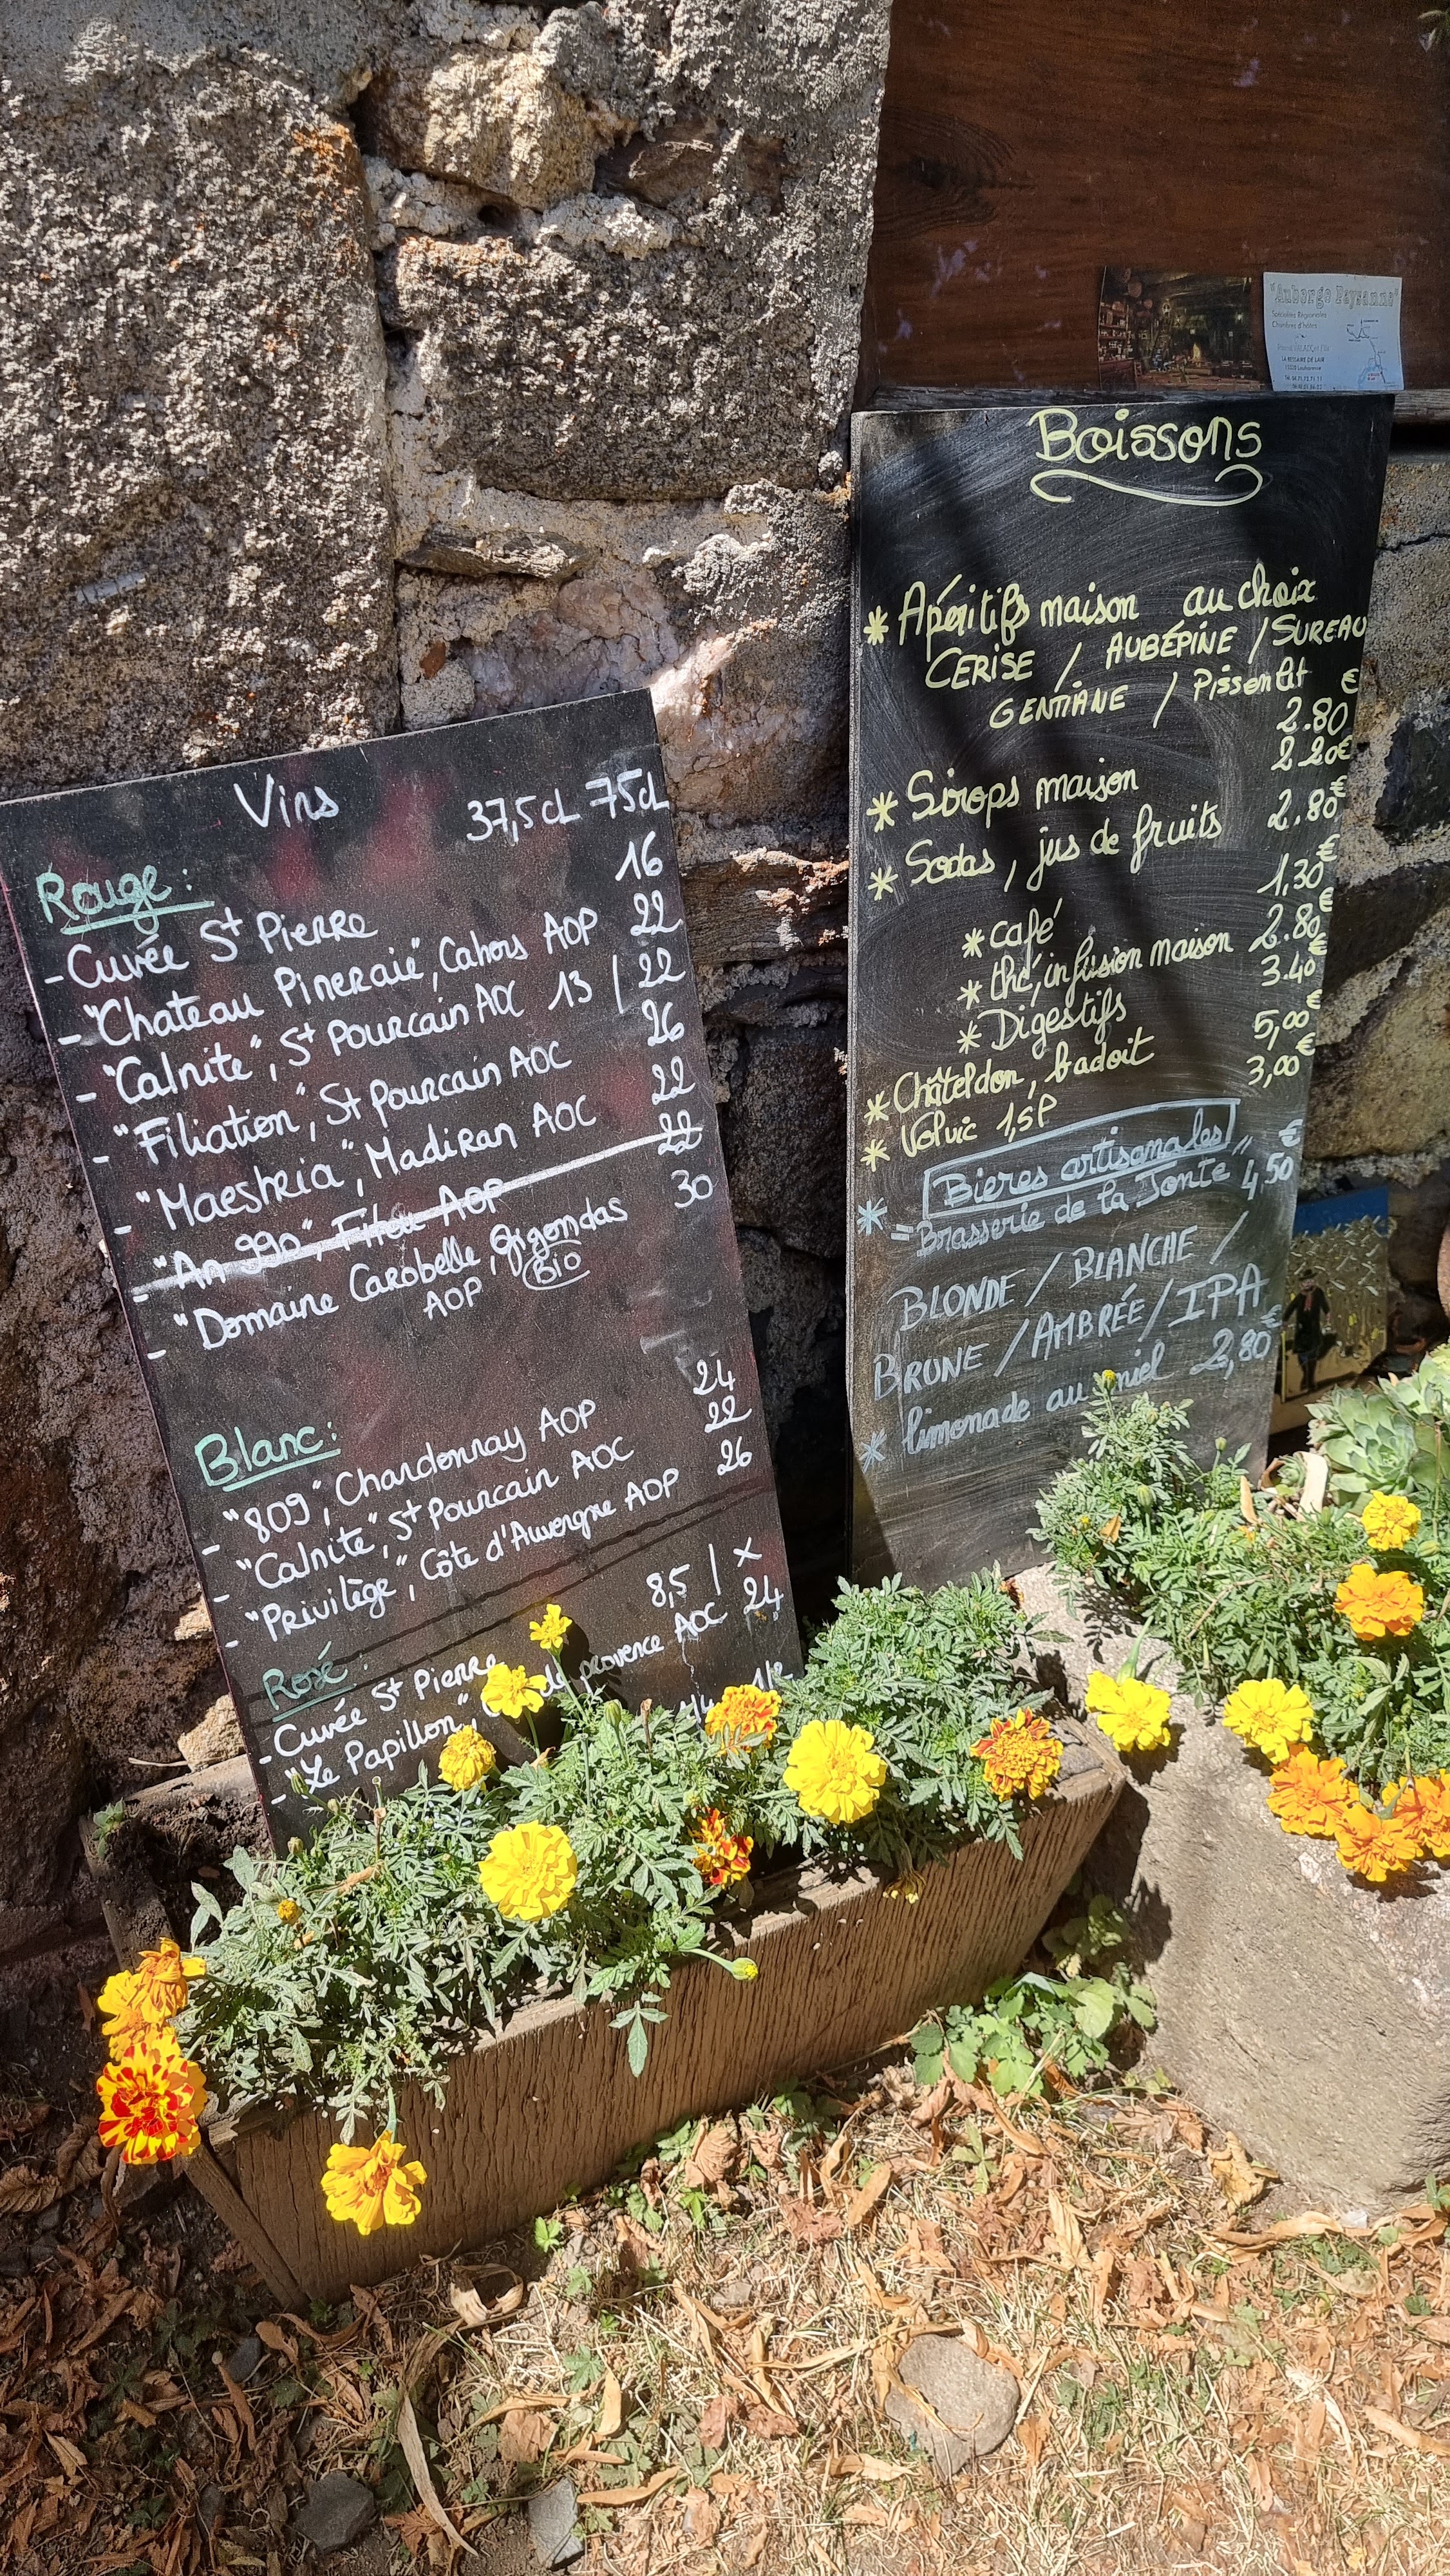 "Auberge Paysanne"
Spécialités Régionales
Chambres d'hôtes
LA BESSAIRE DE LAIR
Boissons
* Apéritifs maison au choix
CERISE / AUBÉPINE / SUREAU
GENTIANE / Pissenlit €
2.80
* Sirops maison 2 20€
* Sodas, jus de fruits 2.80€
* café 1,30€
* thé, infusion maison 2.80€
* Digestifs 3.40€
* Châteldon, badoit 5,00€
* Volvic 1,5 3,00€
* Bières artisanales
- Brasserie de la Jonte" 4,50€
BLONDE / BLANCHE /
BRUNE / AMBRÉE / IPA
* limonade au miel 2,80€
Vins 37,5cL 75cL
Rouge:
- Cuvée St Pierre 16
- "Chateau Pineraie", Cahors AOP 22
- "Calnite", St Pourcain AOC 13 / 22
- "Filiation", St Pourcain AOC 26
- "Maestria", Madiran AOC 22
- "An 990", Fitou AOP 22
- "Domaine Carobelle, Gigondas 30
AOP BIO
Blanc:
- "809", Chardonnay AOP 24
- "Calnite", St Pourcain AOC 22
- "Privilège", Côte d'Auvergne AOP 26
Rosé:
- Cuvée St Pierre 8,5 / x
- "Le Papillon", de provence AOC 24
1/2